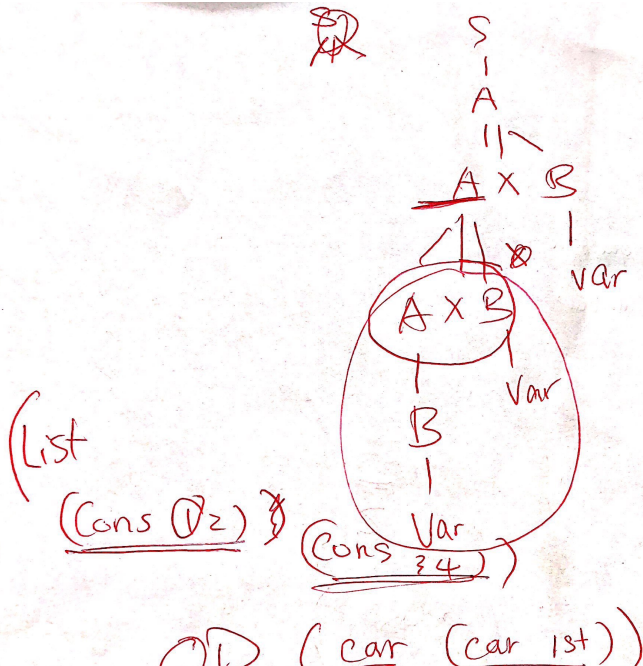 S
A
A X B
var
A X B
Var
B
Var
(List
(Cons 1 2)
(Cons 3 4))
(car (car lst))